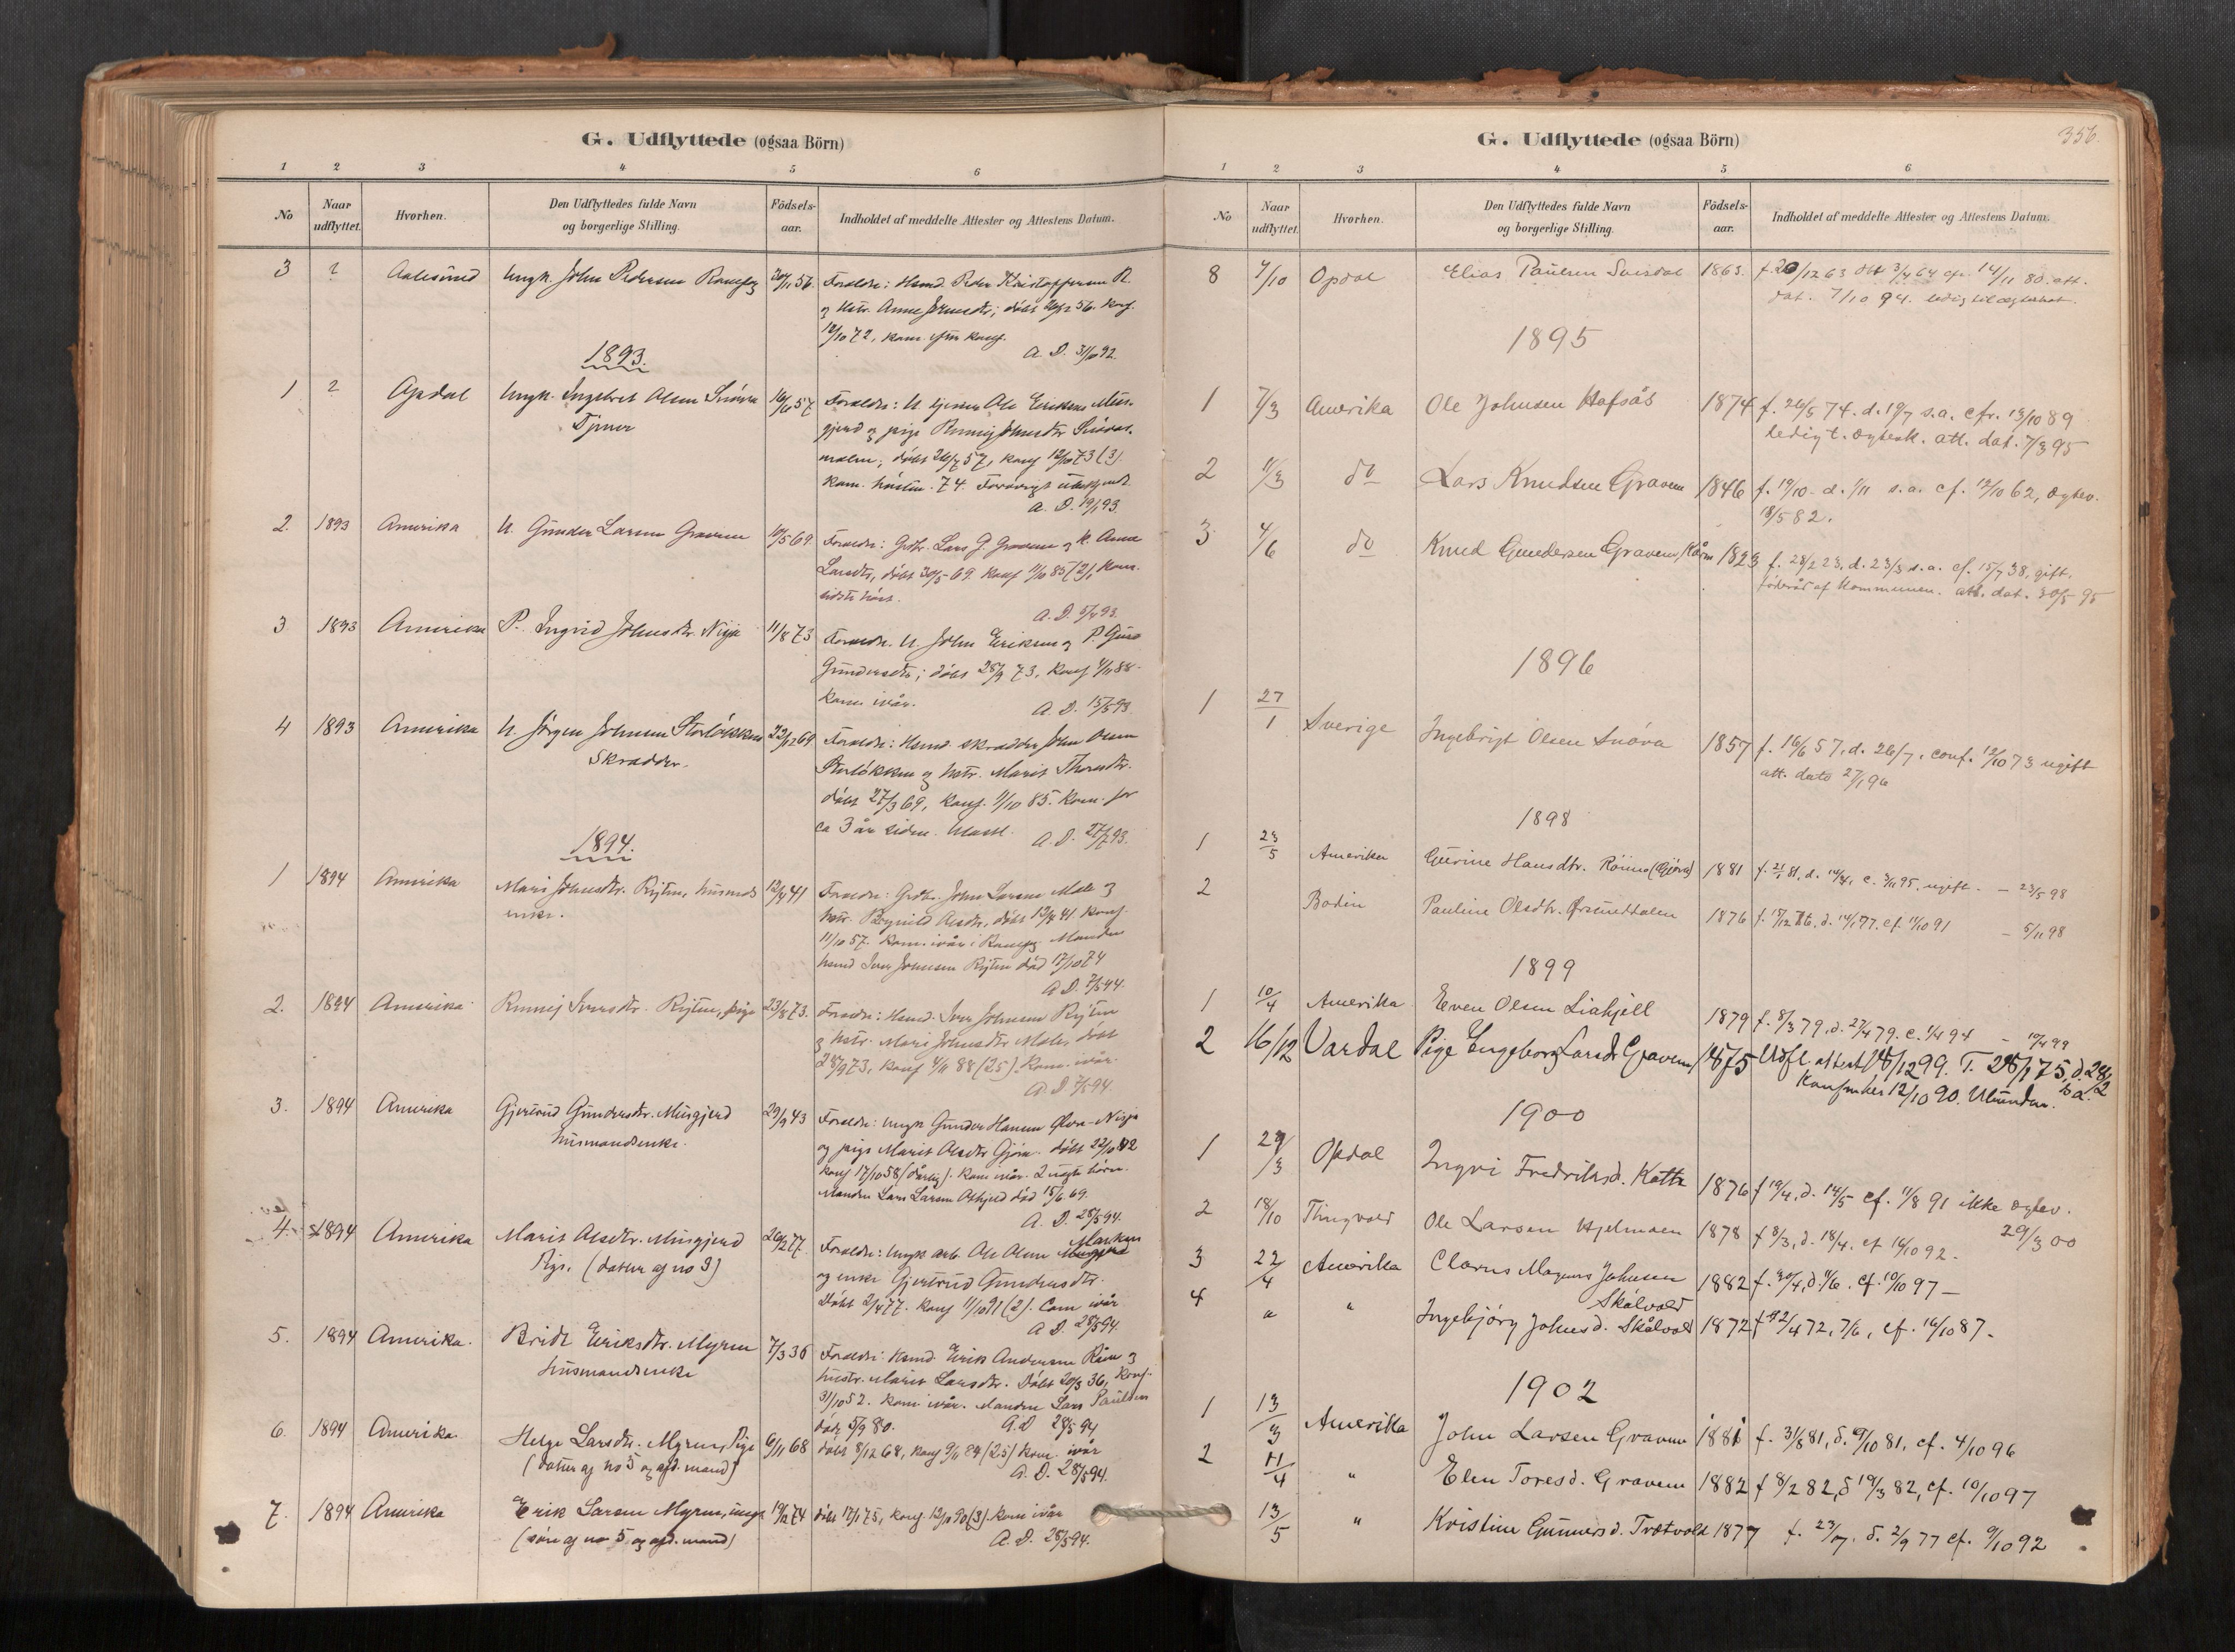 G. Udflyttede (ogsaa Börn)
1 2 3 4 5 6
No Naar udflyttet. Hvorhen. Den Udflyttedes fulde Navn og borgerlige Stilling. Födsels-aar. Indholdet af meddelte Attester og Attestens Datum.
3 ? Aalesund Ungk. John Pedersen 30/11 56. Forældre: Hsmd. Peder Kristoffersen R.
og Hstr. Anne; döbt 26/12 56. Konf.
12/10 72, kom.
A. D. 31/10 92.
1893.
1 ? Opdal Ungk. Ingebret Olsen Snöva 16/6 57 Forældre: U. tjener Ole Eriksen Mus-
Tjener gjerd og pige
döbt 26/7 57, konf 12/10 73 (3).
kom. hösten 74.
A. D. 19/1 93.
2. 1893 Amerika U. Gunder Larsen Gravem 10/5 69. Forældre: Grdbr. Lars G. Gravem og k. Anne
Larsdtr, döbt 30/5 69. Konf 11/10 85 (2), kom.
sidste höst.
A. D. 5/4 93.
3 1893 Amerika P. Ingrid Johnsdtr. Nisja 11/8 73 Forældre. U. John Eriksen og P. Guro
Gundersdtr; döbt 28/9 73. Konf 4/11 88.
kom. ivår. A. D. 15/5 93
4 1893 Amerika U. Jörgen Johnsen Storlökken 22/2 69 Forældre: Hsmd. skrædder John Olsen
Skrædder. Storlökken og hstr. Marit Thoresdtr.
döbt 27/3 69, konf. 11/10 85. Kom. for
ca 3 år siden. A. D. 27/7 93.
1894.
1 1894 Amerika Mari Johnsdtr. Rÿten, husmds 12/4 41 Forældre: Grdbr. John Larsen Male og
enke. hstr. Olsdtr. döbt 12/4 41. Konf.
11/10 57. Kom. ivår i Romfog. Manden
hsmd Iver Johnsen Rÿten död 17/10 74
A. D. 7/5 94.
2. 1894 Amerika Iversdtr. Rÿten, pige 23/8 73. Forældre: Hsmd. Iver Johnsen Rÿten
og hstr. Mari Johnsdtr Male, döbt
28/9 73, konf 4/11 88 (25). Kom. ivår.
A. D 7/5 94.
3. 1894 Amerika Gjertrud Gundersdtr. Musgjerd 29/9 43 Forældre: Ungk Gunder Hansen
husmandsenke. og pige Marit Olsdtr Gjöra. döbt 22/10 42
konf 17/10 58 (dårlig). Kom ivår. 2 uægte börn.
Manden Lars Larsen död 15/6 69.
A. D. 28/5 94.
4. 1894 Amerika Marit Olsdtr. Musgjerd 26/2 77 Forældre: Ungk arb. Ole Olsen
Pige. (datter af no 3) og enke Gjertrud Gundersdtr.
Döbt 2/4 77. Konf 11/10 91 (2). Com ivår
A. D. 28/5 94.
5. 1894 Amerika. Bridt Eriksdtr. Myren 7/3 36 Forældre: Hsmd. Erik Andersen Röen og
husmandsenke hustr. Marit Larsdtr. Döbt 20/3 36, konf.
31/10 52. Kom. ivår. Manden Lars Paulsen
död 5/9 80. A. D 28/5 94
6. 1894 Amerika Helge Larsdtr. Myren, Pige 6/11 68 döbt 8/12 68, konf 9/11 84 (25) kom. ivår
(datter af no 5 og afd. mand) A. D. 28/5 94.
7. 1894 Amerika Erik Larsen Myren, ungk 19/12 74 döbt 17/1 75, konf. 12/10 90 (3) kom ivår
(sön af no 5 og afd. mand) A. D. 28/5 94.
G. Udflyttede (ogsaa Börn) 356
1 2 3 4 5 6
No Naar udflyttet. Hvorhen. Den Udflyttedes fulde Navn og borgerlige Stilling. Födsels-aar. Indholdet af meddelte Attester og Attestens Datum.
8 7/10 Opdal Elias Paulsen 1863. f. 20/12 63 döbt 3/4 64 cfr. 14/11 80. att.
dat. 7/10 94. ledig til ægteskab.
1895
1 7/3 Amerika Ole Johnsen Hafsås 1874 f. 26/5 74. d. 19/7 s.a. cfr. 13/10 89
ledig t. ægtesk. att. dat. 7/3 95
2 11/3 do Lars Knudsen Gravem 1846 f. 19/10 d. 1/11 s.a. cf. 12/10 62, ægtev.
18/5 82.
3 4/6 do Knud Gundersen Gravem 1823 f. 28/2 23, d. 23/3 s.a. cf. 15/7 38, gift,
föderåd af Kommunen. att. dat. 30/5 95
1896
1 27/1 Sverige Ingebrigt Olsen Snöva 1857 f. 16/6 57, d. 26/7. conf. 12/10 73 ugift
att. dato 27/1 96
1898
1 23/5 Amerika Gurine Hansdtr. Röimo (Gjöra) 1881 f. 21/1 81, d. 14/4, c. 3/11 95, ugift. – 23/5 98
2 Bodin Pauline Olsdtr. Ørsunddalen 1876 f. 17/12 76, d. 14/1 77. cf. 11/10 91 – 5/11 98
1899
1 10/4 Amerika Even Olsen Liahjell 1879 f. 8/3 79, d. 27/4 79. c. 1/4 94 – 10/4 99
2 16/12 Vardal Pige Engeborg Larsdr Gravem 1875 Udfl. attest 16/12 99. F. 28/1 75, d. 28/2
s.a. Konfirmeret 12/10 90.
1900
1 29/3 Opdal Ingri Fredriksd. 1876 f 19/4, d. 14/5 cf. 11/8 91 ikke ægtev.
29/3 00
2 18/10 Thingvold Ole Larsen Hjelmoen 1878 f 8/3, d. 18/4. cf 16/10 92.
3 22/4 Amerika Clarus Magnus Johnsen 1882 f. 30/4, d. 11/6. cf. 10/10 97 –
Skålvold
4 " " Ingebjörg Johnsd. Skålvold 1872 f 12/4 72, 7/6, cf. 16/10 87.
1902
1 13/3 Amerika John Larsen Gravem 1881 f. 31/8 81, d. 9/10 81, cf. 4/10 96
2 11/4 " Elen Toresd. Gravem 1882 f 8/2 82, d 19/3 82, cf. 10/10 97
13/5 " Kristine Gunnersd. Trætvold 1877 f. 23/7. d. 2/9 77 cf. 9/10 92